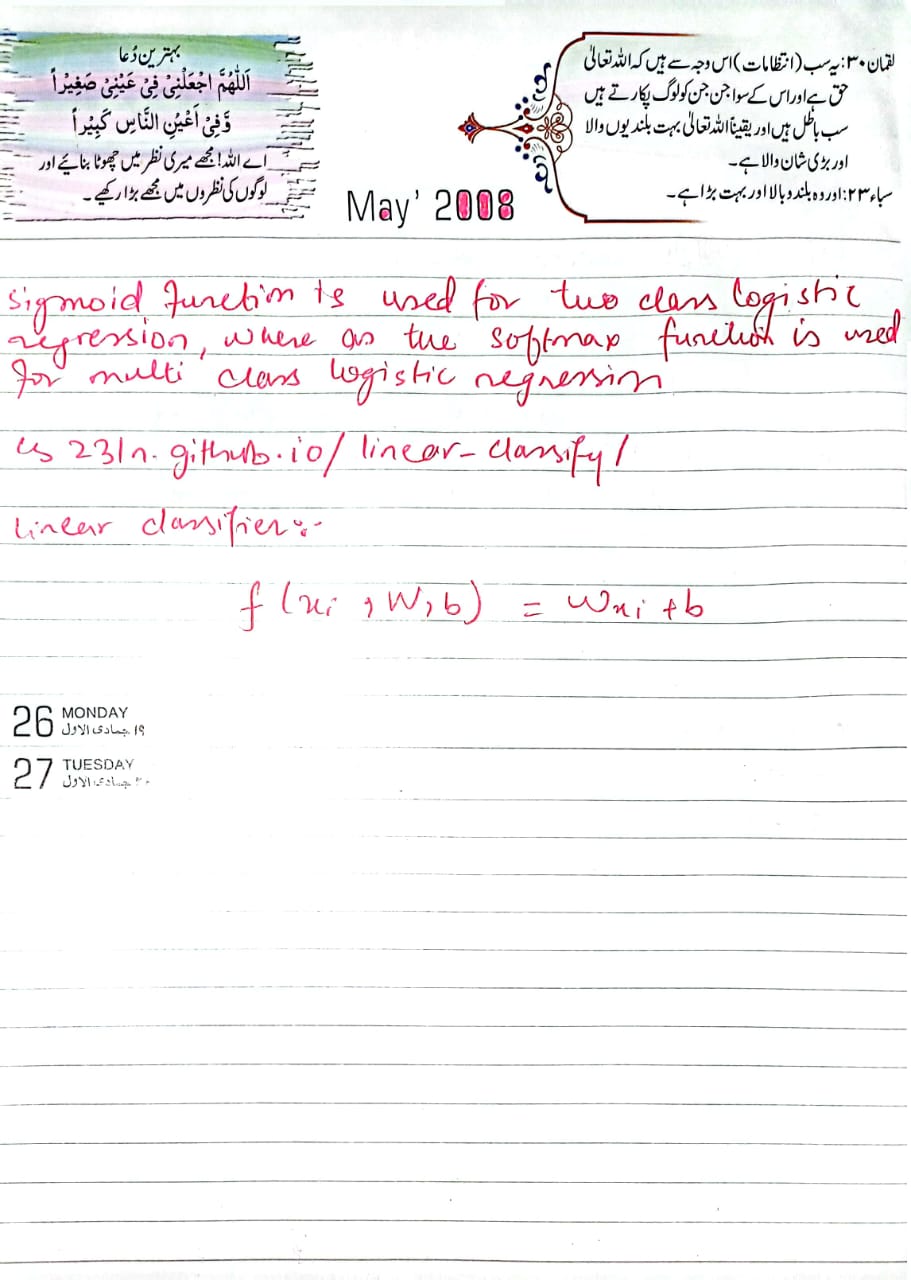 بہترین دُعا
اَللّٰهُمَّ اجْعَلْنِیْ فِیْ عَیْنِیْ صَغِیْراً
وَّفِیْ اَعْیُنِ النَّاسِ كَبِیْراً
اے اللہ! مجھے میری نظر میں چھوٹا بنائیے اور
لوگوں کی نظروں میں مجھے بڑا رکھیے۔
لقمان ۳۰: یہ سب (انتظامات) اس وجہ سے ہیں کہ اللہ تعالیٰ
حق ہے اور اس کے سوا جن جن کو لوگ پکارتے ہیں
سب باطل ہیں اور یقیناً اللہ تعالیٰ بہت بلندیوں والا
اور بڑی شان والا ہے۔
سباء ۲۳: اور وہ بلند و بالا اور بہت بڑا ہے۔
May' 2008
sigmoid function is used for two class logistic
regression, where as the softmax function is used
for multi class logistic regression
cs 231n.github.io/linear-classify/
linear classifier:-
f(xi, W, b) = Wxi + b
26 MONDAY
۱۹ جمادی الاول
27 TUESDAY
۲۰ جمادی الاول